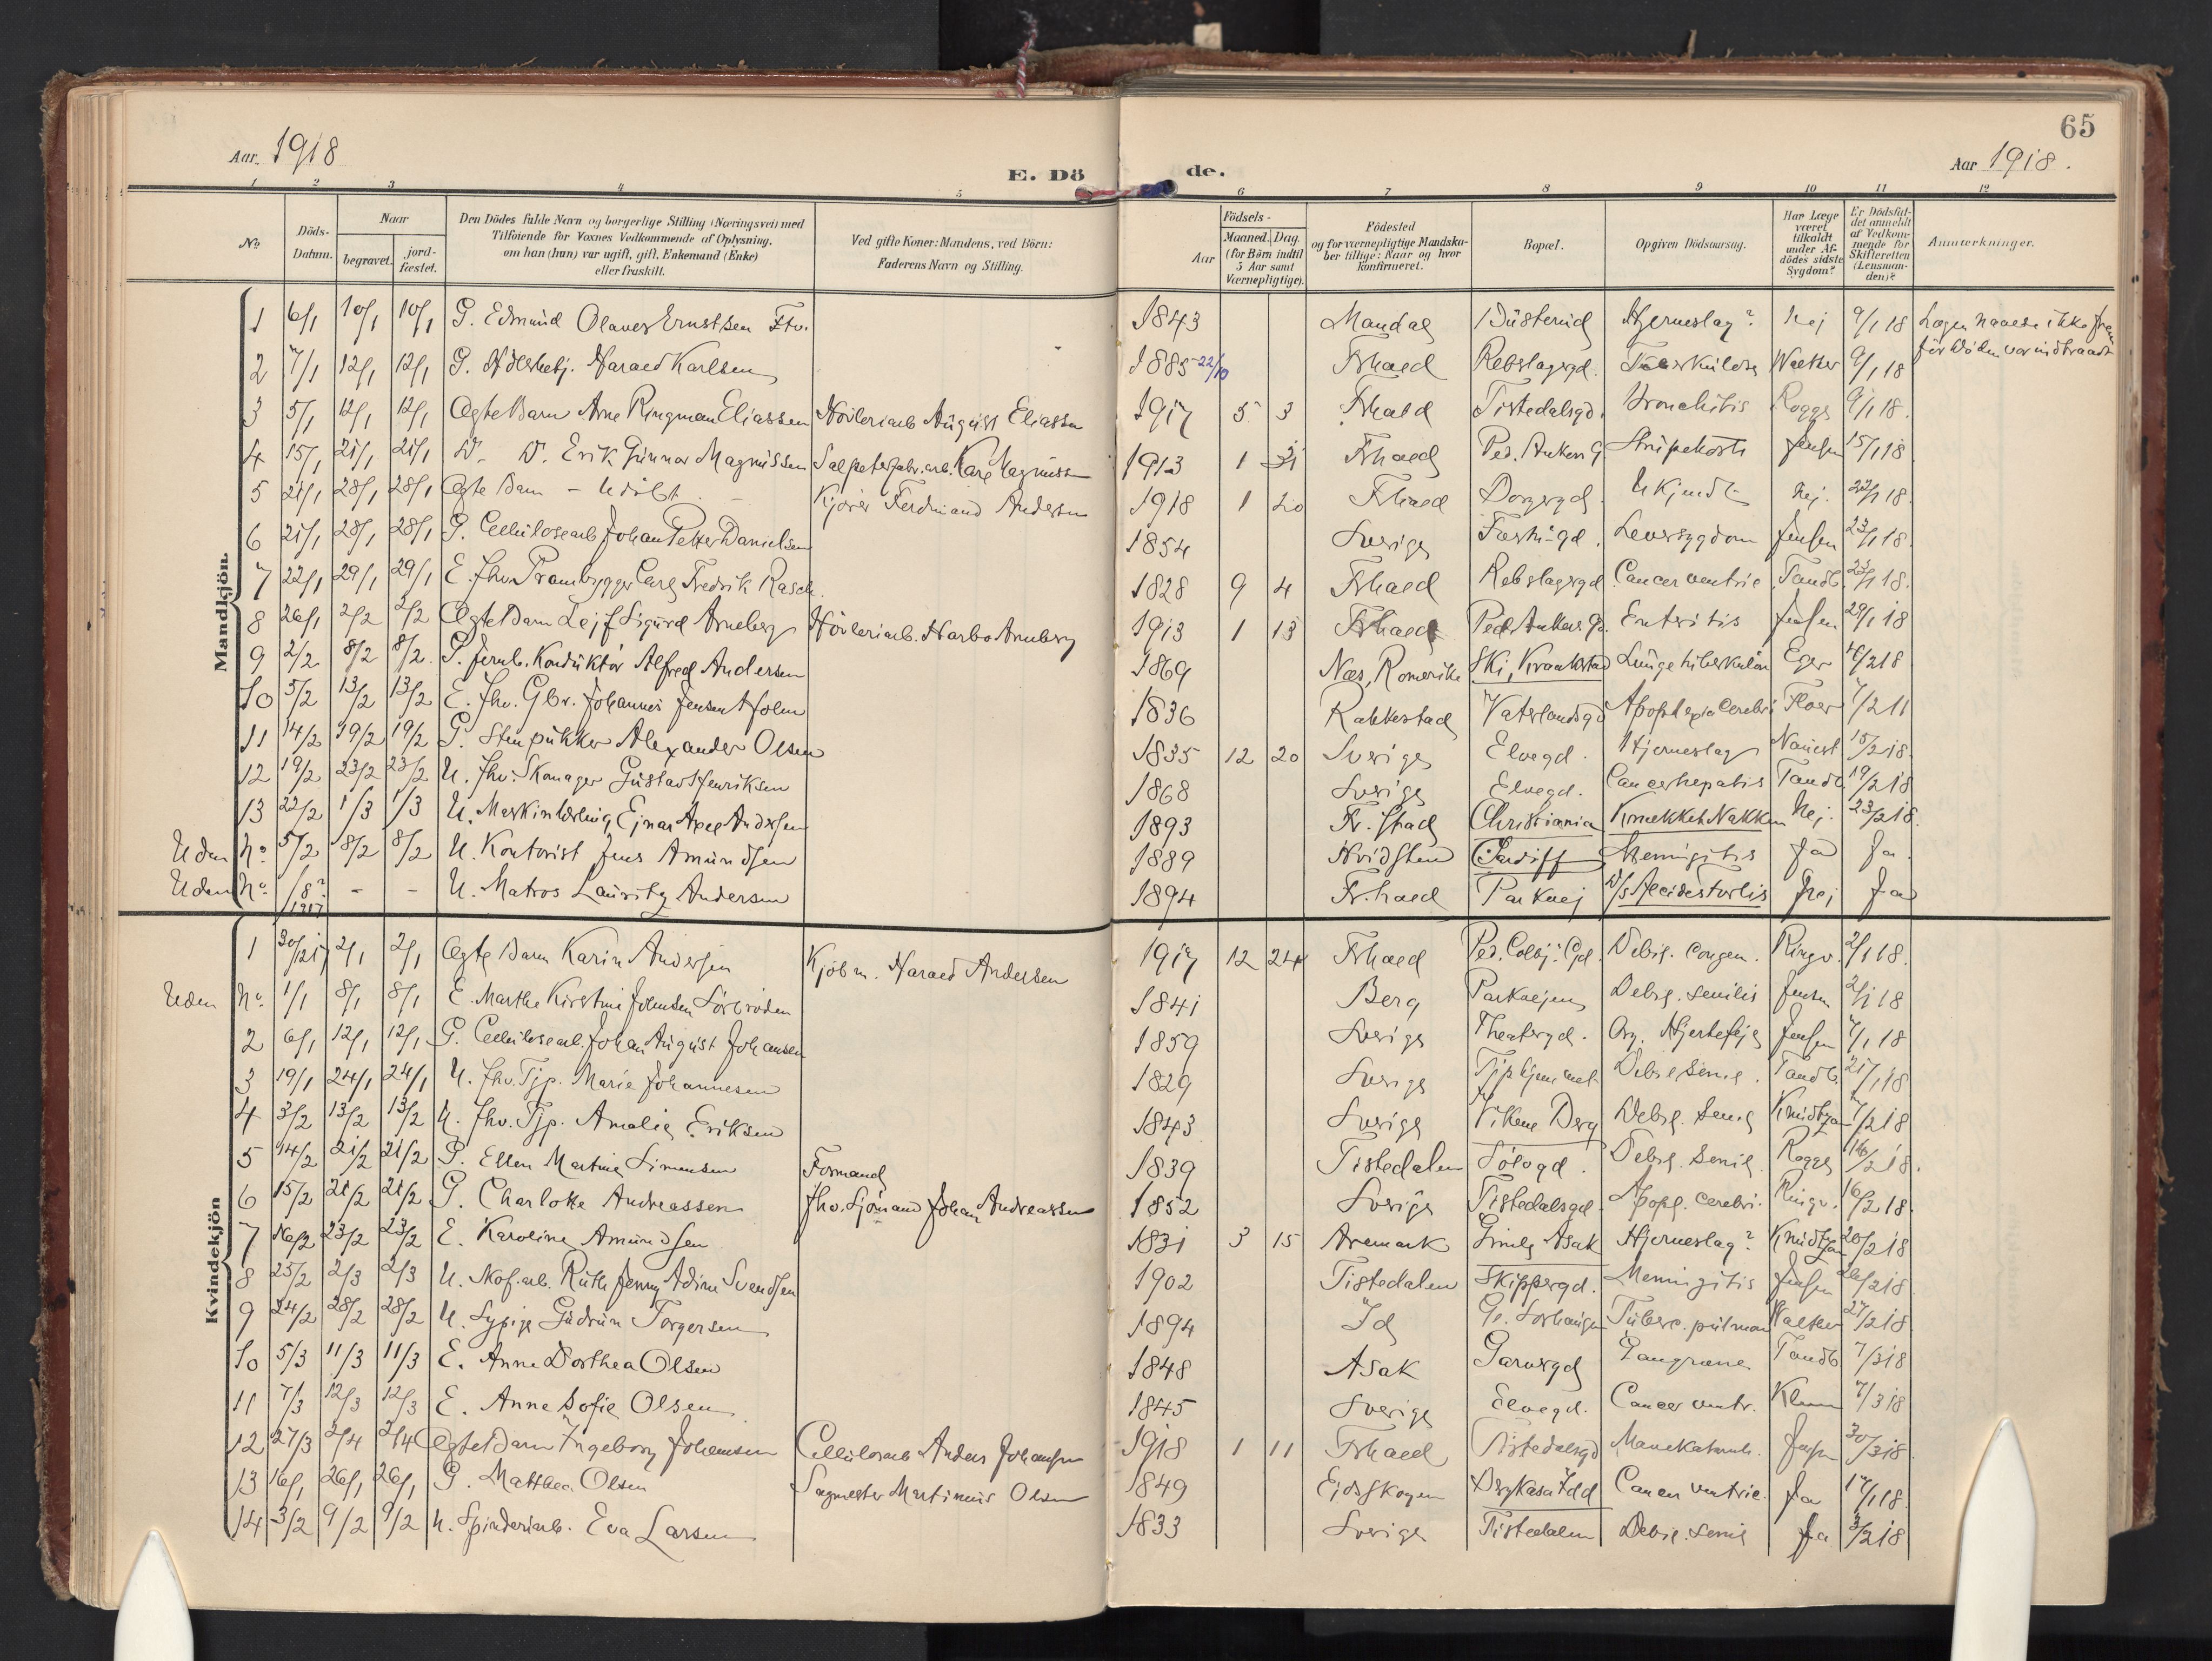 65
Aar. 1918
E. Dö de.
Aar 1918.
1 2 3 4 5 6 7 8 9 10 11 12
No
Döds-Datum.
Naar
begravet.
jord-fæstet.
Den Dödes fulde Navn og borgerlige Stilling (Næringsvei) med
Tilföiende for Voxnes Vedkommende af Oplysning,
om han (hun) var ugift, gift, Enkemand (Enke)
eller fraskilt.
Ved gifte Koner: Mandens, ved Börn:
Faderens Navn og Stilling.
Födsels-
Aar
Maaned. Dag.
(for Börn indtil
5 Aar samt
Værnepligtige).
Födested
og for værnepligtige Mandska-
ber tillige: Naar og hvor
konfirmeret.
Bopæl.
Opgiven Dödsaarsag.
Har Læge
været
tilkaldt
under Af-
dödes sidste
Sygdom?
Er Dödsfal-
det anmeldt
af Vedkom-
mende for
Skifteretten
(Lensman-
den)?
Anmærkninger.
Mandkjön.
1 6/1 10/1 10/1 G. Edmund Olaves Ernstsen Ftv. 1843 Mandal Büsterud Hjerneslag? Nej 9/1 18 Lægen naaede ikke frem
før Döden var indtraadt
2 7/1 12/1 12/1 G. Harald Karlsen 1885 22/10 Frhald Rebslagergd. Walker 9/1 18
3 5/1 12/1 12/1 Ægte Barn Arne Ringman Eliassen Hövleriarb August Eliassen 1917 5 3 Frhald Tistedalsgd. Bronchitis Rogge 9/1 18.
4 15/1 21/1 21/1 D. D. Erik Gunnar Magnüssen Salpeterfabr.arb. Karl Magnüssen 1913 1 Frhald Ped. Ankers G. Strüpehoste Jensen 15/1 18
5 21/1 28/1 28/1 Ægte Barn - Udöbt - Kjörer Ferdinand Andersen 1918 1 20 Frhald Borgergd. Ukjendt Nej. 22/1 18.
6 21/1 28/1 28/1 G. Cellülosearb Johan Petter Danielsen 1854 Sverige Leversygdom Jensen 23/1 18.
7 22/1 29/1 29/1 E. Fhv. Prambygger Carl Fredrik Rasch. 1828 9 4 Frhald Rebslagergd. Cancer ventric. Tandb. 23/1 18.
8 26/1 2/2 2/2 Ægte Barn Lejf Sigurd Arneberg Hövleriarb. Narbo Arneberg 1913 1 13 Frhald Ped. Ankers Gd. Enteritis Jensen 29/1 18
9 2/2 8/2 8/2. G. Jernb. Kondüktör Alfred Andersen 1869 Næs, Romerike Ski, Kraakstad Lüngetüberkülose Eger 4/2 18
10 5/2 13/2 13/2 E. Fhv. Gbr. Johannes Jensen Holm 1836 Rakkestad Vaterlandsgd Apoplexia Cerebri Floer 7/2 11
11 14/2 19/2 19/2 G. Stenpükker Alexander Olsen 1835 12 20 Sverige Elvegd. Hjerneslag 15/2 18.
12 19/2 23/2 23/2 U. Fhv. Skomager Güstav Henriksen 1868 Sverige Elvegd. Cancer hepatis Tandb 19/2 18
13 22/2 1/3 1/3 U. Maskinlærling Ejnar Axel Andersen 1893 Fr.stad Christiania Knækket Nakken Nej. 23/2 18.
Uden No 5/2 8/2 8/2 U. Kontorist Jens Amündsen 1889 Hvidsten Cardiff Menigitis Ja Ja.
Uden No. /8? 1917 - - U. Matros Lauritz Andersen 1894 Fr.hald Parkvej Nej Ja
Kvindekjön
1 30/12 17 2/1 2/1 Ægte Barn Karin Andersen Kjöbm. Harald Andersen 1917 12 24 Frhald Ped. Colbj. Gd. Debil. congen. Ringv. 2/1 18.
Uden No. 1/1 8/1 8/1 E. Marthe Kirstine Johnsen Sörbröden 1841 Berg Parkvejen Debil. senilis Jensen 2/1 18
2 6/1 12/1 12/1 G. Cellülosearb. Johan Aügüst Johansen 1859 Sverige Theatergd. Org. Hjertefejl Jensen 7/1 18
3 19/1 24/1 24/1 U. Fhv. Tjp. Marie Johannesen 1829 Sverige Debil Senil. Tandb. 21/1 18
4 3/2 13/2 13/2 U. Fhv. Tjp. Amalie Eriksen 1843 Sverige Vikene Berg Debil. Senil Knüdtzon 7/2 18
5 14/2 21/2 21/2 G. Ellen Martine Simensen Formand 1839 Tistedalen Sölvgd. Debil. Senil. Rogge 16/2 18.
6 15/2 21/2 21/2 G. Charlotte Andreassen Fhv. Sjömand Johan Andreassen 1852 Sverige Tistedalsgd Apopl. cerebri. Ringv. 16/2 18.
7 16/2 23/2 23/2 E. Karoline Amündsen 1831 3 15 Aremark Gimle Asak Hjerneslag? Knüdtzon 20/2 18
8 25/2 2/3 2/3 U. Skof.arb. Rüth Jenny Adine Svendsen 1902 Tistedalen Skippergd. Menigitis Jensen 26/2 18
9 24/2 28/2 28/2 U. Sypige Güdrün Torgersen 1894 Id Tüberc. pülmon Walker 27/2 18.
10 5/3 11/3 11/3 E. Anne Dorthea Olsen 1848 Asak Garvergd Gangræne Tandb 7/3 18
11 7/3 12/3 12/3 E. Anne Sofie Olsen 1845 Sverige Elvegd. Cancer ventr. 7/3 18
12 27/3 2/4 2/4 Ægte Barn Ingeborg Johansen Cellülosearb Anders Johansen 1918 1 11 Frhald Tistedalsgd Mavekatarrh. Jensen 30/3 18.
13 16/1 26/1 26/1 G. Matthea Olsen Sagmester Martinius Olsen 1849 Eidsskogen Cancer ventric. Ja 17/1 18.
14 3/2 9/2 9/2 U. Spinderiarb. Eva Larsen 1833 Sverige Tistedalen Debil. senil Ja 3/2 18